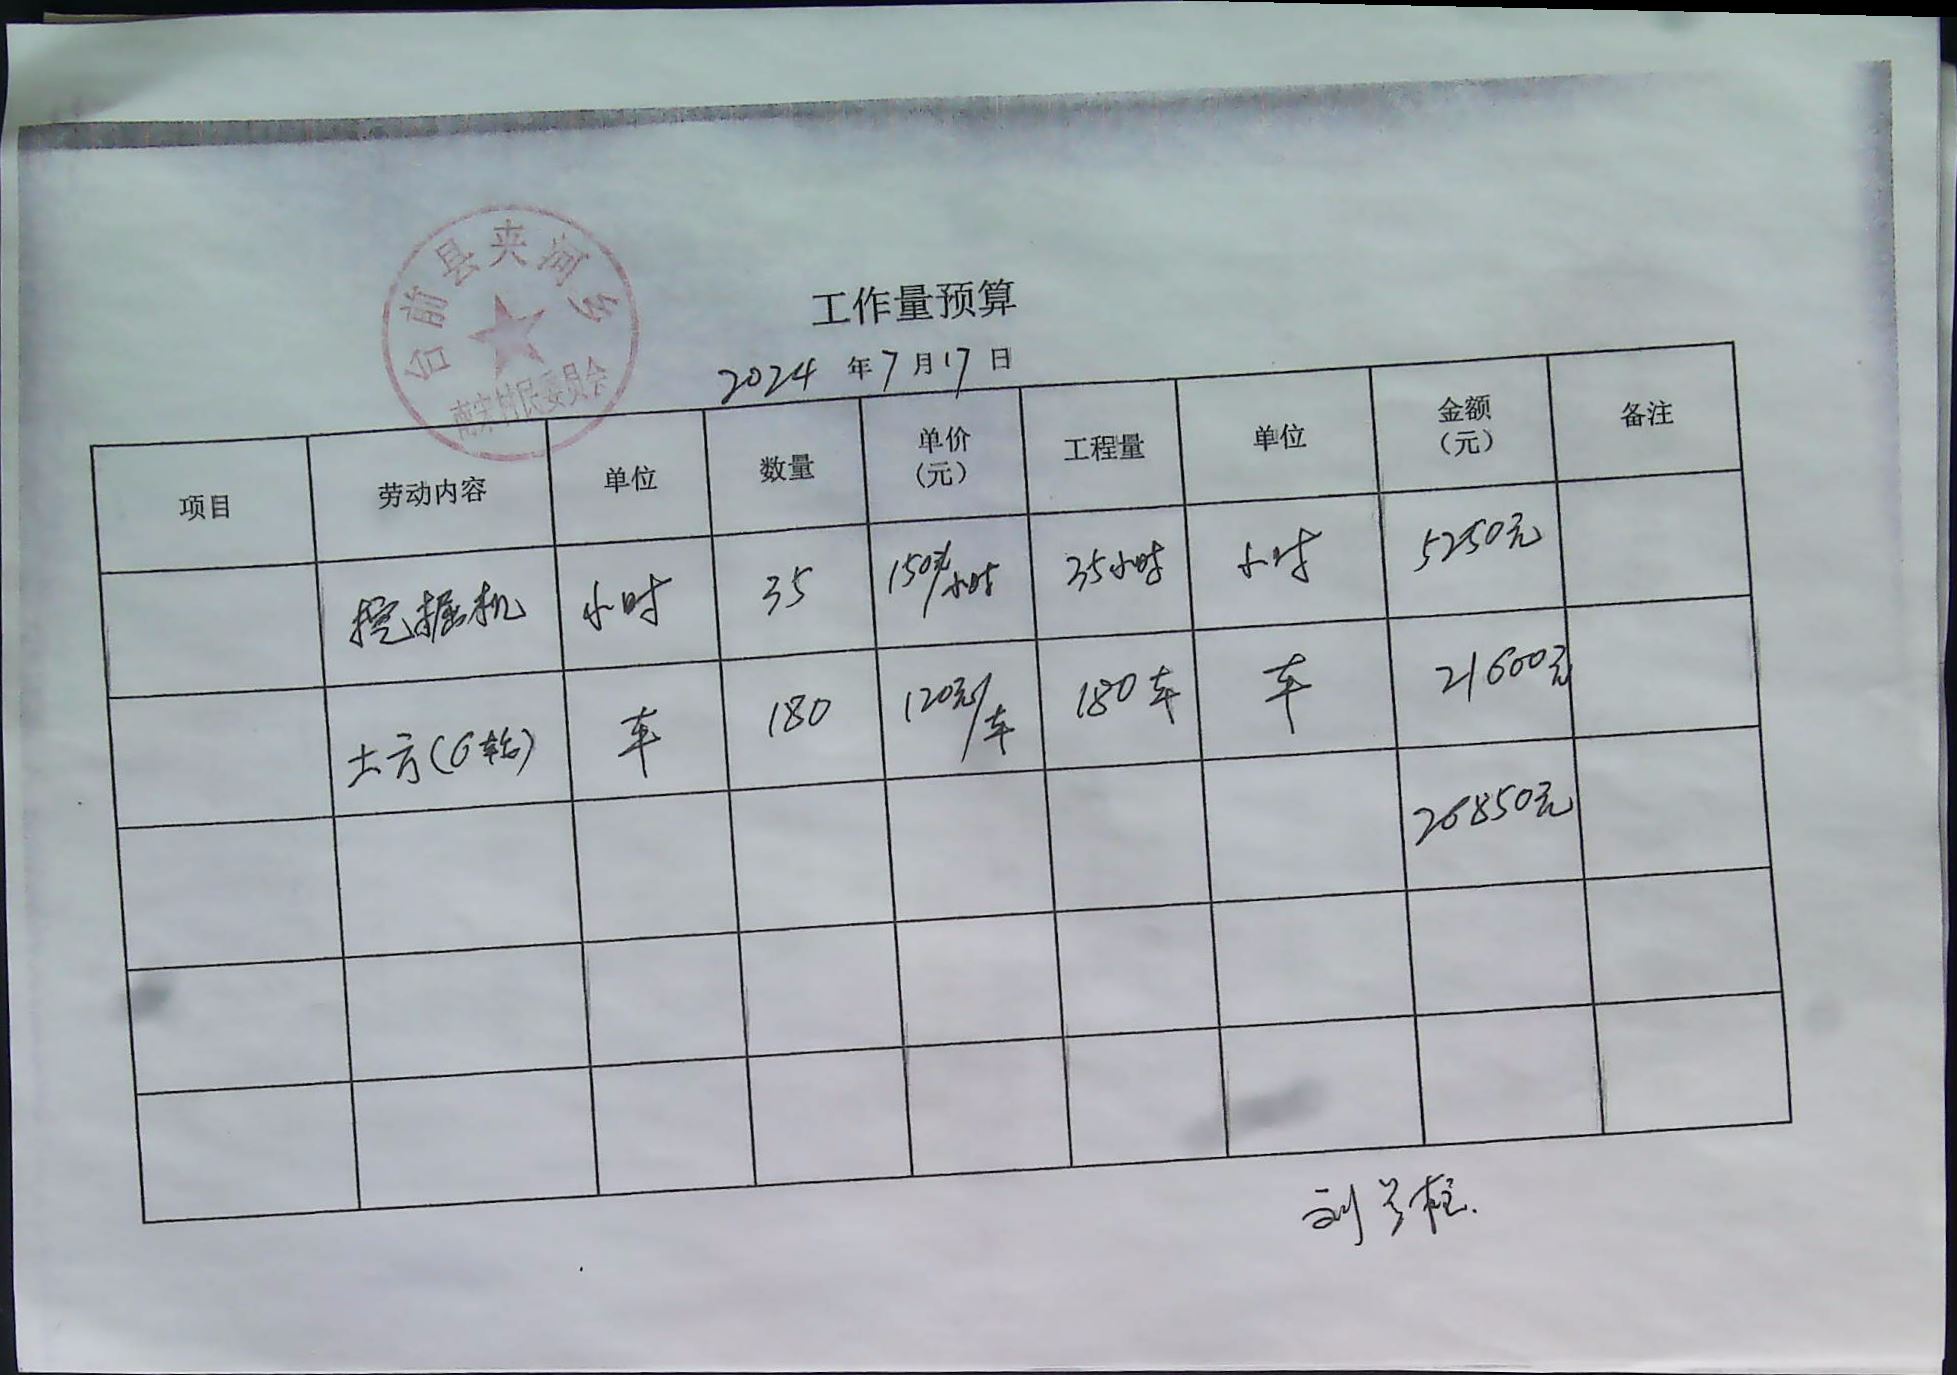 台前县夹河乡
南宋村民委员会
工作量预算
2024 年 7 月 17 日
项目 劳动内容 单位 数量 单价（元） 工程量 单位 金额（元） 备注
挖掘机 小时 35 150元/小时 35小时 小时 5250元
土方(6轮) 车 180 120元/车 180车 车 21600元
26850元
刘